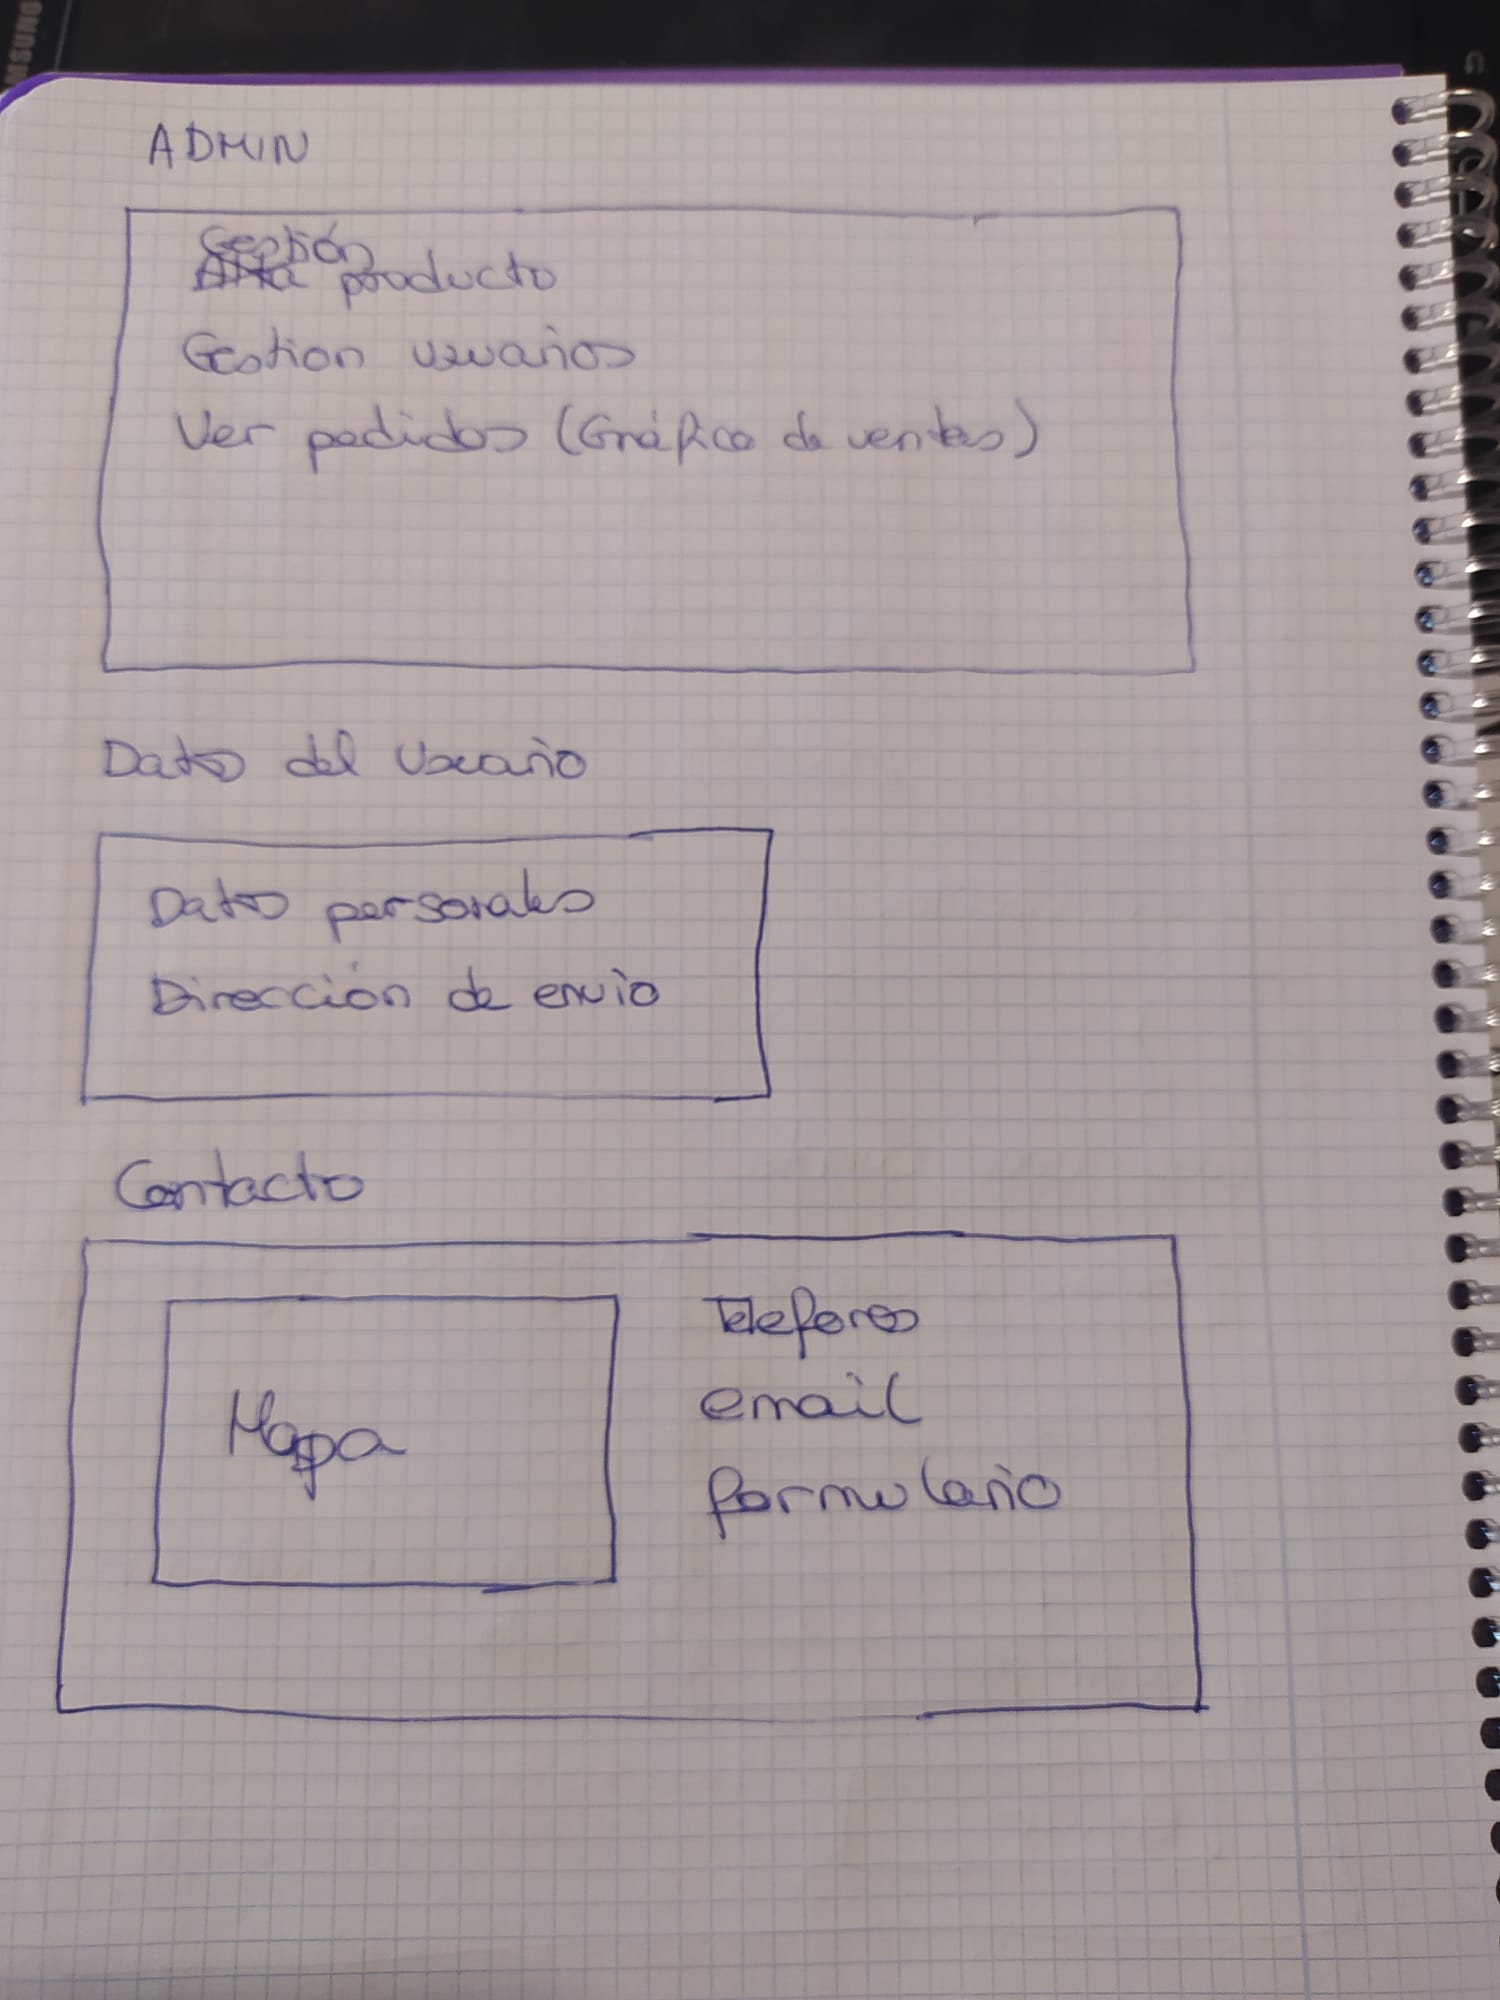 MSUNG
ADMIN
Gestión
Alta producto
Gestion usuarios
Ver pedidos (Gráfico de ventas)
Datos del Usuario
Datos personales
Dirección de envio
Contacto
Mapa
Telefonos
email
formulario